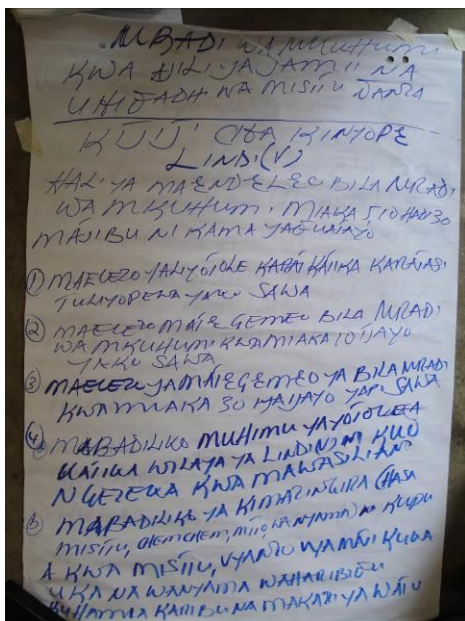 MRADI WA MKUHUMI
KWA AJILI YA JAMII NA
UHIFADHI WA MISITU NANZA
KIJIJI CHA KINYOPE
LINDI (V)
HALI YA MAENDELEO BILA MRADI
WA MKUHUMI. MIAKA 5, 10 HADI 30
MAJIBU NI KAMA YAFUATAYO
① MAELEZO YALIYOTOLE KATIKA KARATASI
TULIYOPEWA YAKO SAWA
② MAELEZO MATEGEMEO BILA MRADI
WA MKUHUMI KWA MIAKA 10 IJAYO
YAKO SAWA
③ MAELEZO YA MATEGEMEO YA BILA MRADI
KWA MIAKA 30 HAIJAYO YAPI SAWA
④ MABADILIKO MUHIMU YAYOTOLEA
KATIKA WILAYA YA LINDI NI KUO
NGEZEKA KWA MAWASILIAN
⑤ MABADILIKO YA KIMAZINGIRA HASA
MISITU, CHEMCHEM, MITO, WANYAMA NI KUPU
A KWA MISITU, VYANZO VYA MAJI KUWA
UKA NA WANYAMA WAHARIBIFU
KUHAMIA KARIBU NA MAKAZI YA WATU